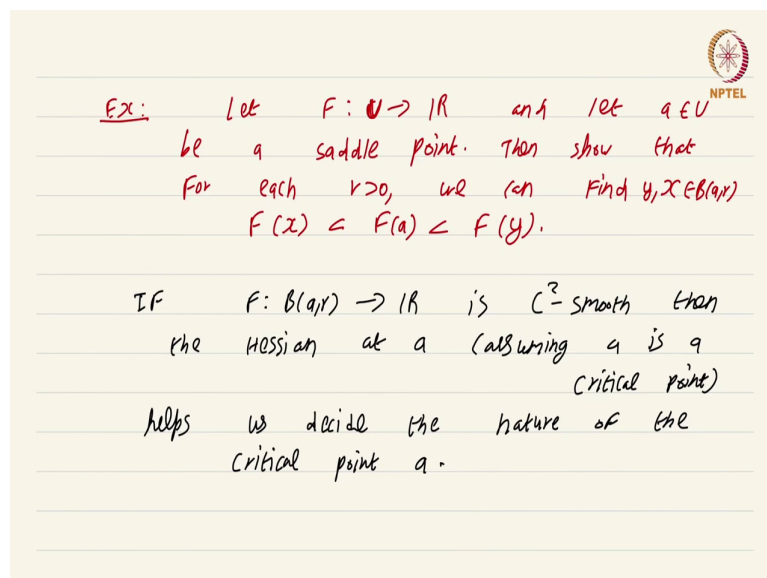 NPTEL
Ex: Let F: U → IR and let a ∈ U
be a saddle point. Then show that
For each r>0, we can find y, x ∈ B(a,r)
F(x) < F(a) < F(y).
IF F: B(a,r) → IR is C²-smooth then
the Hessian at a (assuming a is a
critical point)
helps us decide the nature of the
critical point a.